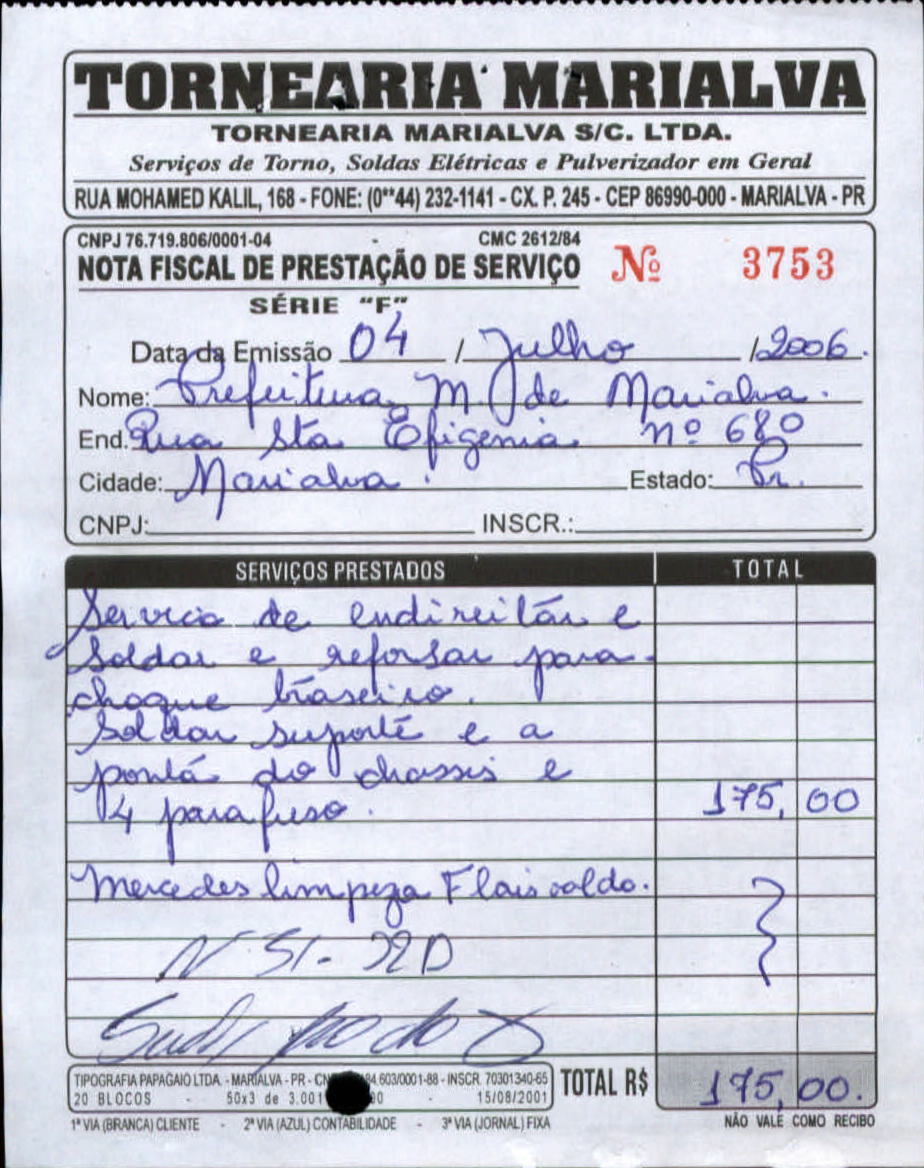 TORNEARIA MARIALVA
TORNEARIA MARIALVA S/C. LTDA.
Serviços de Torno, Soldas Elétricas e Pulverizador em Geral
RUA MOHAMED KALIL, 168 - FONE: (0**44) 232-1141 - CX. P. 245 - CEP 86990-000 - MARIALVA - PR
CNPJ 76.719.806/0001-04 CMC 2612/84
NOTA FISCAL DE PRESTAÇÃO DE SERVIÇO Nº 3753
SÉRIE "F"
Data da Emissão 04 / Julho /2006.
Nome: Prefeitura M. de Marialva.
End. Rua Sta Efigenia nº 680
Cidade: Marialva. Estado: Pr.
CNPJ: INSCR.:
SERVIÇOS PRESTADOS TOTAL
Servico de endireitar e
Soldar e reforsar para-
choque traseiro.
Soldar suporte e a
ponta do chassis e
4 parafuso. 175,00
Mercedes limpeza
TIPOGRAFIA PAPAGAIO LTDA. - MARIALVA - PR - 84.603/0001-88 - INSCR. 70301340-65
20 BLOCOS - 50x3 de 3.001 - 15/08/2001
TOTAL R$ 175,00.
1ª VIA (BRANCA) CLIENTE - 2ª VIA (AZUL) CONTABILIDADE - 3ª VIA (JORNAL) FIXA NÃO VALE COMO RECIBO